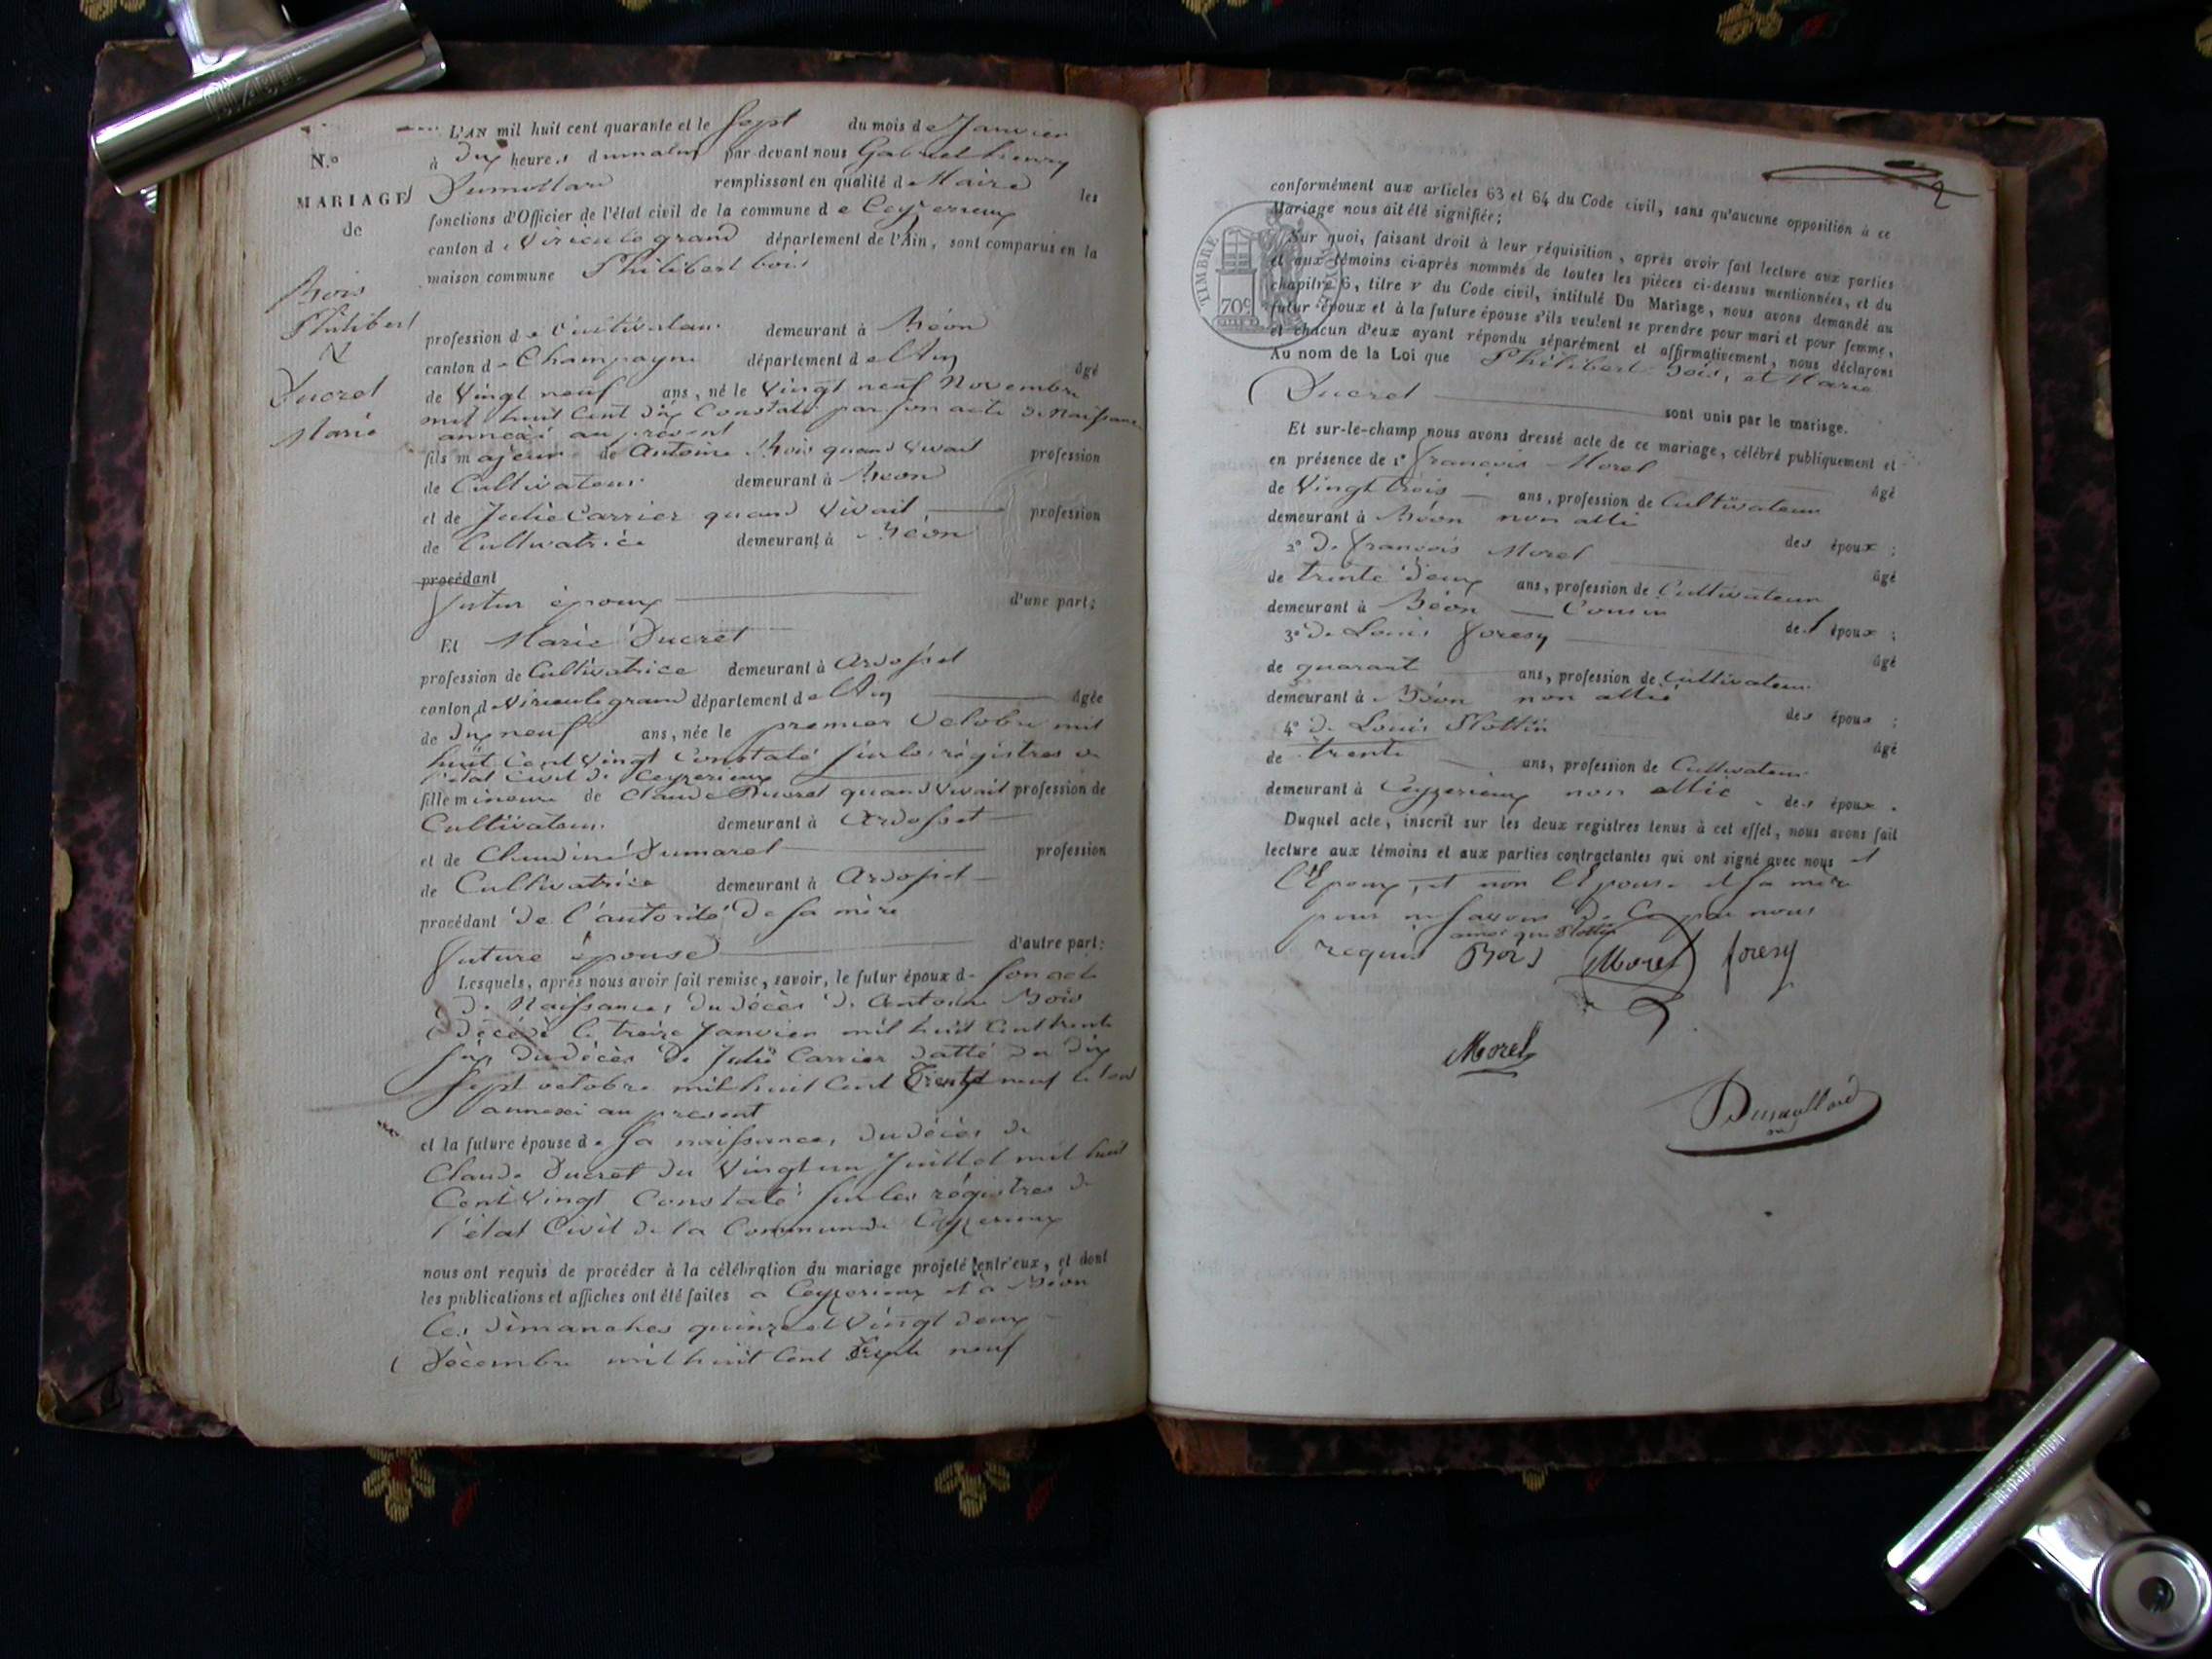 L'AN mil huit cent quarante et le sept du mois de Janvier
N.º à dix heures du matin par-devant nous Gabriel henry
MARIAGE Dumollard remplissant en qualité de Maire les
de fonctions d'Officier de l'état civil de la commune de Ceyzerieux
canton de Virieu le grand département de l'Ain, sont comparus en la
maison commune Philibert bois
Bois
Philibert
&
Ducret
Marie
profession de Cultivateur demeurant à Béon
canton de Champagne département de l'Ain âgé
de Vingt neuf ans, né le Vingt neuf Novembre
mil huit Cent dix Constaté par son acte de Naissance
annexé au présent
fils majeur de Antoine Bois quand vivait profession
de Cultivateur demeurant à Béon
et de Julie Carrier quand Vivait profession
de Cultivatrice demeurant à Béon
procédant
futur époux d'une part;
Et Marie Ducret
profession de Cultivatrice demeurant à Ardosset
canton de Virieu le grand département de l'Ain âgée
de dix neuf ans, née le premier Octobre mil
huit Cent Vingt Constaté sur les régistres de
l'état Civil de Ceyzerieux
fille mineure de Claude Ducret quand vivait profession de
Cultivateur demeurant à Ardosset
et de Claudine Dumarel profession
de Cultivatrice demeurant à Ardosset
procédant de l'autorité de sa mère
future épouse d'autre part;
Lesquels, après nous avoir fait remise, savoir, le futur époux de son acte
de Naissance, du décès de Antoine Bois
décédé le treize Janvier mil huit Cent trente
six, du décès de Julie Carrier datté du dix
sept octobre mil huit Cent Trente neuf le tout
annexé au présent
et la future épouse de sa naissance, du décès de
Claude Ducret du Vingt un Juillet mil huit
Cent Vingt Constaté sur les régistres de
l'état Civil de la Commune de Ceyzerieux
nous ont requis de procéder à la célébration du mariage projeté entr'eux, et dont
les publications et affiches ont été faites a Ceyzerieux et à Béon
les dimanches quinze et Vingt deux
Décembre mil huit Cent Trente neuf
conformément aux articles 63 et 64 du Code civil, sans qu'aucune opposition à ce
Mariage nous ait été signifiée;
TIMBRE ROYAL
70c
Sur quoi, faisant droit à leur réquisition, après avoir fait lecture aux parties
et aux témoins ci-après nommés de toutes les pièces ci-dessus mentionnées, et du
chapitre 6, titre v du Code civil, intitulé Du Mariage, nous avons demandé au
futur époux et à la future épouse s'ils veulent se prendre pour mari et pour femme,
et chacun d'eux ayant répondu séparément et affirmativement, nous déclarons
Au nom de la Loi que Philibert Bois, et Marie
Ducret sont unis par le mariage.
Et sur-le-champ nous avons dressé acte de ce mariage, célébré publiquement et
en présence de 1º françois Morel âgé
de Vingt trois ans, profession de Cultivateur
demeurant à Béon non allié des époux;
2º de françois Morel âgé
de trente deux ans, profession de Cultivateur
demeurant à Béon Cousin de l époux;
3º de Louis foresy âgé
de quarant ans, profession de Cultivateur
demeurant à Béon non allié des époux;
4º de Louis Flottin âgé
de trente ans, profession de Cultivateur
demeurant à Ceyzerieux non allié des époux.
Duquel acte, inscrit sur les deux registres tenus à cet effet, nous avons fait
lecture aux témoins et aux parties contractantes qui ont signé avec nous et
l'Epoux, et non l'Epouse et sa mère
pour ne savoir de Ce par nous
ainsi que Flottin
requis Bois Morel foresy
Morel
Dumollard